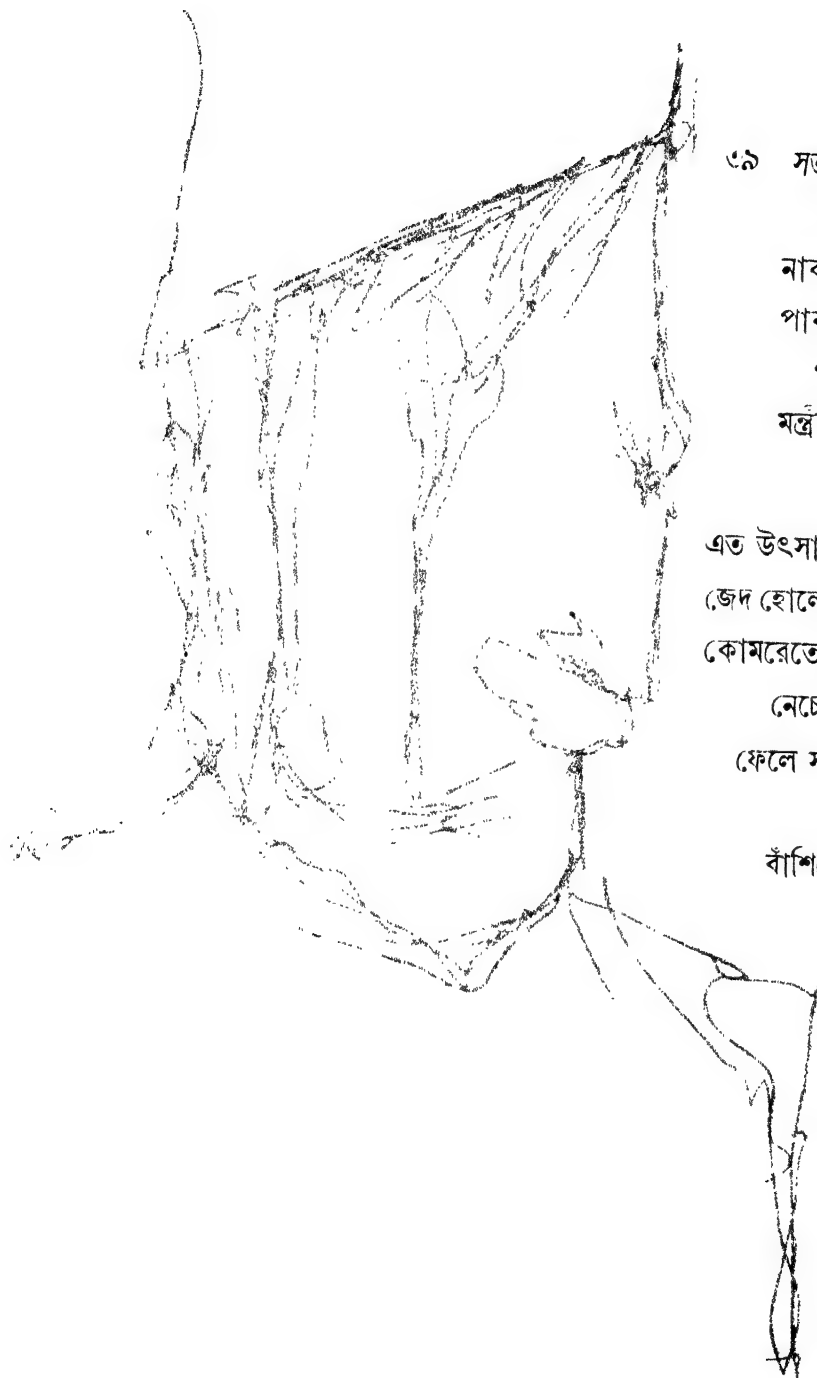 ৩৯
পা
মন্ত্র
এত উৎসা
জেদ হোলে
কোমরেতে
নেচে
ফেলে স
বাঁশি